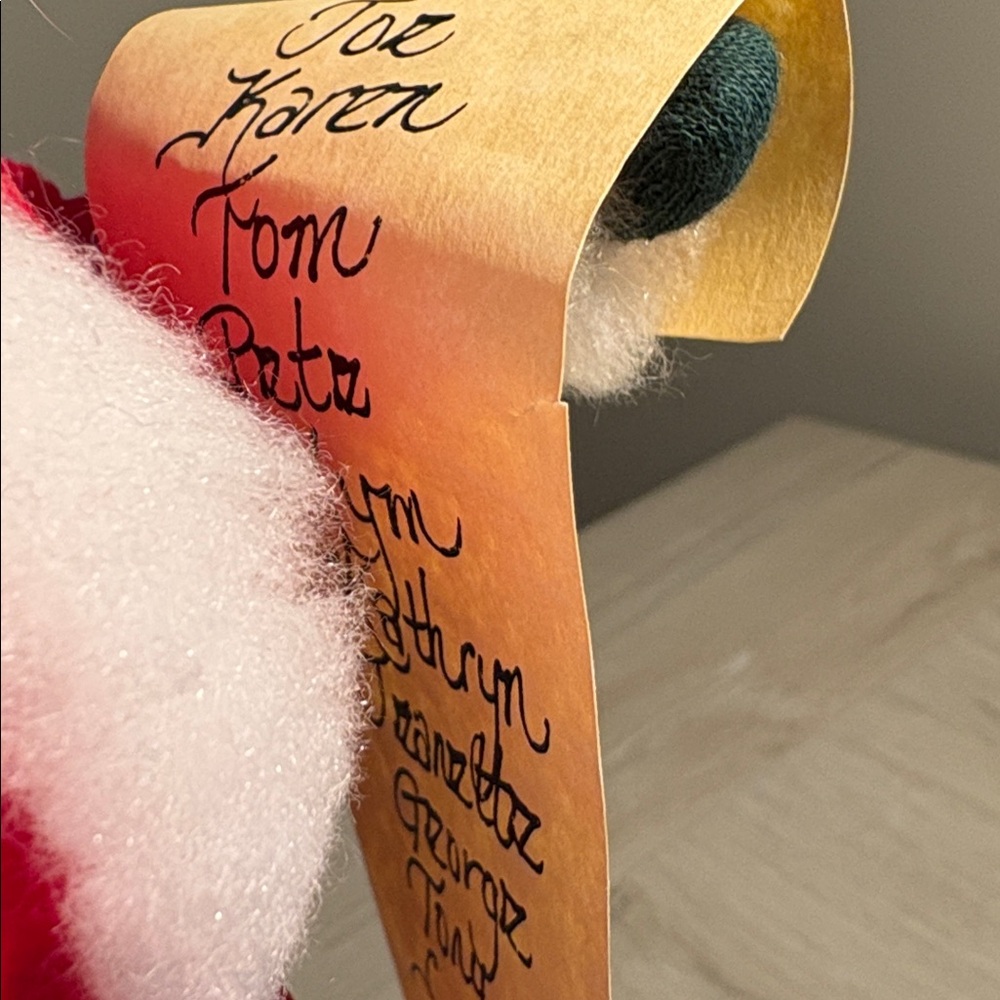 Joe
Karen
Tom
Pete
ym
athryn
Jeanette
George
Tony